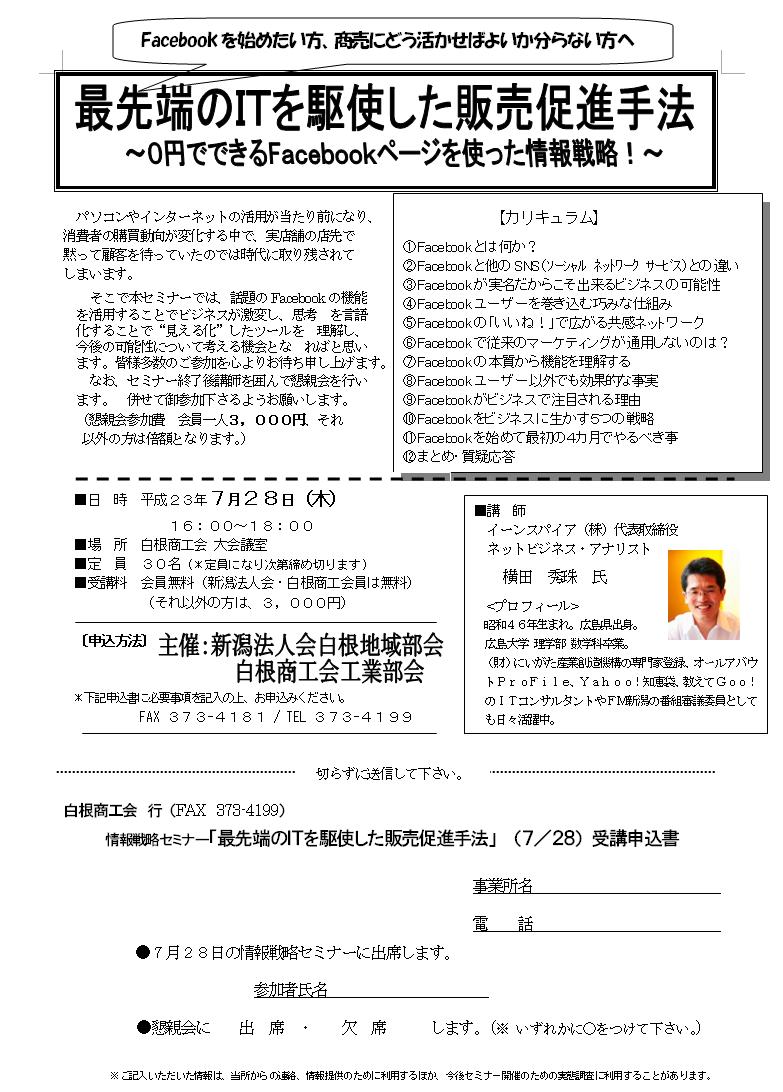 Facebookを始めたい方、商売にどう活かせばよいか分らない方へ
最先端のITを駆使した販売促進手法
～0円でできるFacebookページを使った情報戦略！～
パソコンやインターネットの活用が当たり前になり、
消費者の購買動向が変化する中で、実店舗の店先で
黙って顧客を待っていたのでは時代に取り残されて
しまいます。
そこで本セミナーでは、話題のFacebookの機能
を活用することでビジネスが激変し、思考　を言語
化することで“見える化”したツールを　理解し、
今後の可能性について考える機会とな　ればと思い
ます。皆様多数のご参加を心よりお待ち申し上げます。
なお、セミナー終了後講師を囲んで懇親会を行い
ます。　併せて御参加下さるようお願いします。
（懇親会参加費　会員一人３，０００円、それ
以外の方は倍額となります。）
【カリキュラム】
①Facebookとは何か？
②Facebookと他のSNS（ソーシャル ネットワーク サービス）との違い
③Facebookが実名だからこそ出来るビジネスの可能性
④Facebookユーザーを巻き込む巧みな仕組み
⑤Facebookの「いいね！」で広がる共感ネットワーク
⑥Facebookで従来のマーケティングが通用しないのは？
⑦Facebookの本質から機能を理解する
⑧Facebookユーザー以外でも効果的な事実
⑨Facebookがビジネスで注目される理由
⑩Facebookをビジネスに生かす５つの戦略
⑪Facebookを始めて最初の４カ月でやるべき事
⑫まとめ・質疑応答
■日　時　平成２３年７月２８日（木）
１６：００～１８：００
■場　所　白根商工会 大会議室
■定　員　３０名（＊定員になり次第締め切ります）
■受講料　会員無料（新潟法人会・白根商工会員は無料）
（それ以外の方は、３，０００円）
〔申込方法〕主催：新潟法人会白根地域部会
白根商工会工業部会
＊下記申込書に必要事項を記入の上、お申込みください。
FAX ３７３-４１８１ / TEL ３７３-４１９９
■講　師
イーンスパイア（株）代表取締役
ネットビジネス・アナリスト
横田　秀珠　氏
<プロフィール>
昭和４６年生まれ。広島県出身。
広島大学 理学部 数学科卒業。
（財）にいがた産業創造機構の専門家登録、オールアバウ
トＰｒｏＦｉｌｅ、Ｙａｈｏｏ！知恵袋、教えてＧｏｏ！
のＩＴコンサルタントやＦＭ新潟の番組審議委員として
も日々活躍中。
切らずに送信して下さい。
白根商工会　行（FAX　373-4199）
情報戦略セミナー「最先端のITを駆使した販売促進手法」（７／２８）受講申込書
事業所名
電　　話
●７月２８日の情報戦略セミナーに出席します。
参加者氏名
●懇親会に　　出　席　・　　欠　席　　　します。（※ いずれかに〇をつけて下さい。）
※ご記入いただいた情報は、当所からの連絡、情報提供のために利用するほか、今後セミナー開催のための実態調査に利用することがあります。